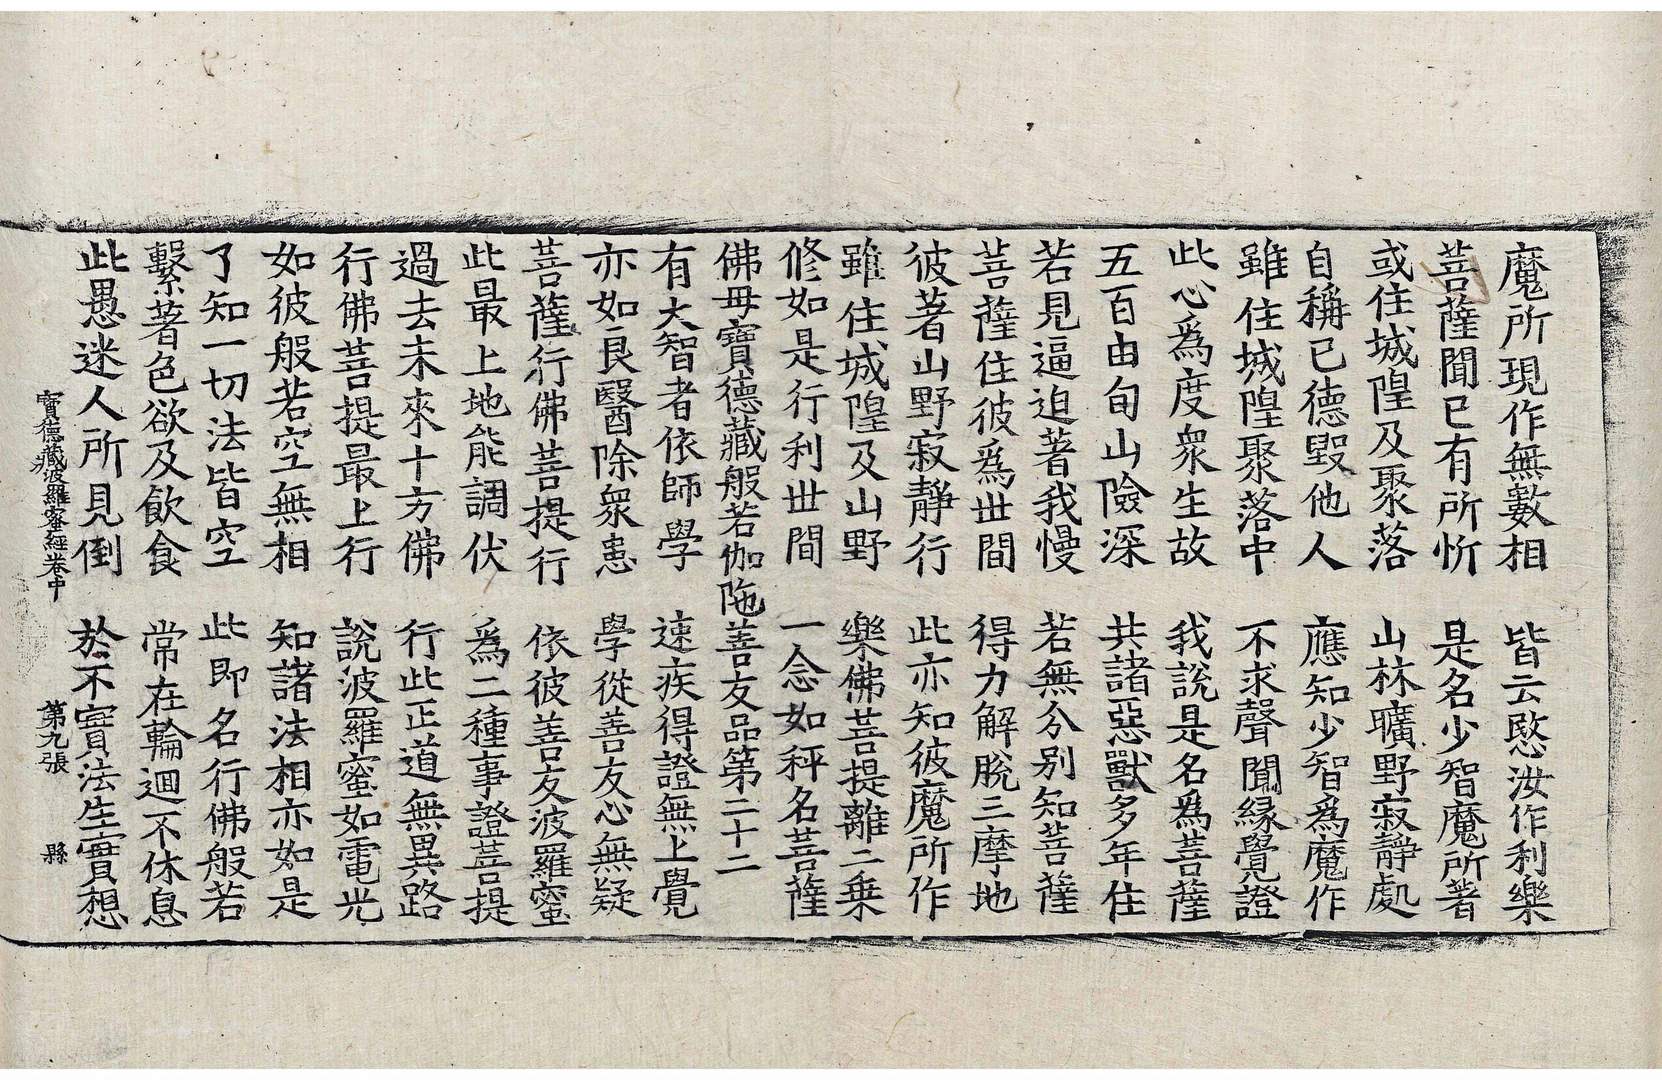 魔所現作無數相　皆云愍汝作利樂
菩薩聞已有所忻　是名少智魔所著
或住城隍及聚落　山林曠野寂靜處
自稱已德毀他人　應知少智爲魔作
雖住城隍聚落中　不求聲聞縁覺證
此心爲度衆生故　我說是名爲菩薩
五百由旬山險深　共諸惡獸多年住
若見逼迫著我慢　若無分別知菩薩
菩薩住彼爲世間　得力解脫三摩地
彼著山野寂靜行　此亦知彼魔所作
雖住城隍及山野　樂佛菩提離二乗
修如是行利世間　一念如秤名菩薩
佛母寶德藏般若伽陁善友品第二十二
有大智者依師學　速疾得證無上覺
亦如良醫除衆患　學從善友心無疑
菩薩行佛菩提行　依彼善友波羅蜜
此最上地能調伏　爲二種事證菩提
過去未來十方佛　行此正道無異路
行佛菩提最上行　說波羅蜜如電光
如彼般若空無相　知諸法相亦如是
了知一切法皆空　此即名行佛般若
繫著色欲及飲食　常在輪迴不休息
此愚迷人所見倒　於不實法生實想
寶德藏波羅蜜經卷中　第九張　縣